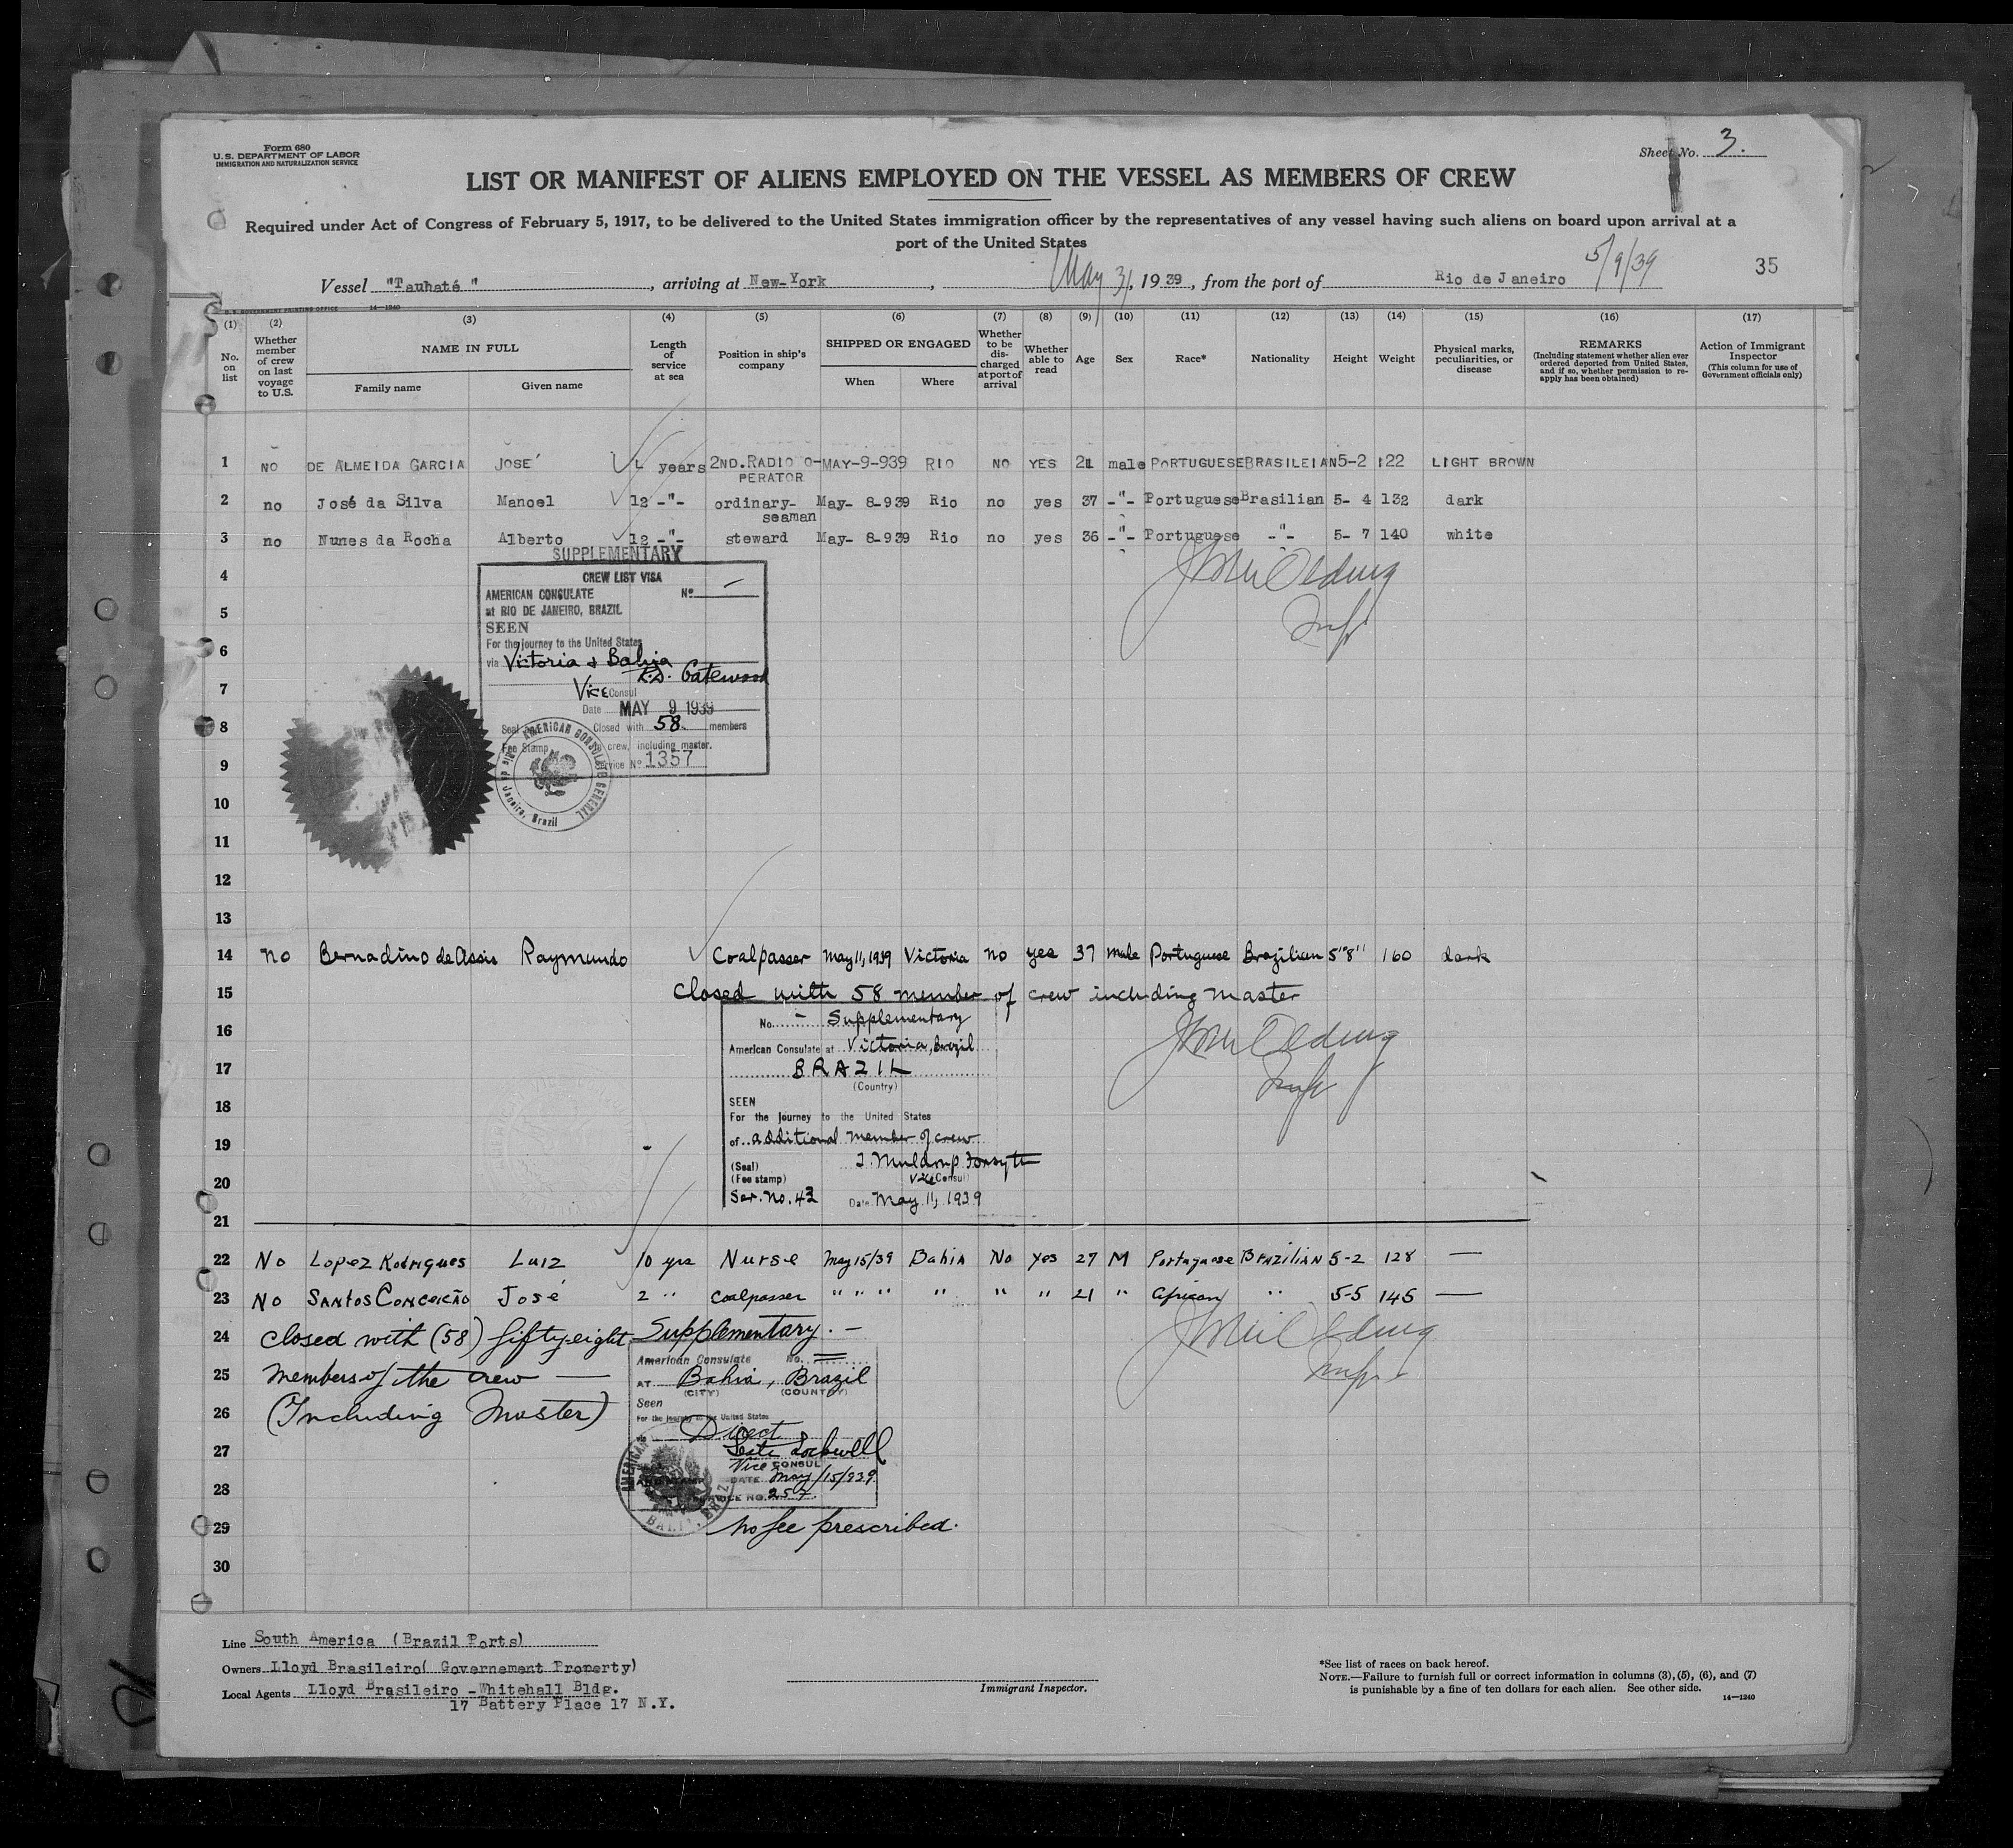 Form 680
U. S. DEPARTMENT OF LABOR
IMMIGRATION AND NATURALIZATION SERVICE
Sheet No. 3.
LIST OR MANIFEST OF ALIENS EMPLOYED ON THE VESSEL AS MEMBERS OF CREW
Required under Act of Congress of February 5, 1917, to be delivered to the United States immigration officer by the representatives of any vessel having such aliens on board upon arrival at a
port of the United States
5/9/39
35
Vessel "Taubaté", arriving at New-York, May 31, 1939, from the port of Rio de Janeiro
U. S. GOVERNMENT PRINTING OFFICE 14—1240
(1) (2) (3) (4) (5) (6) (7) (8) (9) (10) (11) (12) (13) (14) (15) (16) (17)
No. on list
Whether member of crew on last voyage to U.S.
NAME IN FULL
Family name
Given name
Length of service at sea
Position in ship's company
SHIPPED OR ENGAGED
When
Where
Whether to be discharged at port of arrival
Whether able to read
Age
Sex
Race*
Nationality
Height
Weight
Physical marks, peculiarities, or disease
REMARKS
(Including statement whether alien ever ordered deported from United States, and if so, whether permission to reapply has been obtained)
Action of Immigrant Inspector
(This column for use of Government officials only)
1 NO DE ALMEIDA GARCIA JOSE' years 2ND.RADIO O- MAY-9-939 RIO NO YES 21 male PORTUGUESE BRASILEIAN 5-2 122 LIGHT BROWN
PERATOR
2 no José da Silva Manoel 12 -"- ordinary- May- 8-939 Rio no yes 37 -"- Portuguese Brasilian 5- 4 132 dark
seaman
3 no Nunes da Rocha Alberto 12 -"- steward May- 8-939 Rio no yes 36 -"- Portuguese -"- 5- 7 140 white
SUPPLEMENTARY
4
CREW LIST VISA
AMERICAN CONSULATE Nº —
at RIO DE JANEIRO, BRAZIL
5
SEEN
For the journey to the United States
6
via Victoria & Bahia
R.S. Gatewood
7
Vice Consul
Date MAY 9 1939
8
Seal Closed with 58 members
Fee Stamp of crew, including master.
9
Service Nº 1357
AMERICAN CONSULATE GENERAL
Rio de Janeiro, Brazil
10
11
12
13
14 no Bernadino de Assis Raymundo Coalpasser May 11, 1939 Victoria no yes 37 male Portuguese Brazilian 5"8" 160 dark
15 Closed with 58 member of crew including master
16
No. - Supplementary
American Consulate at Victoria, Brazil
17
BRAZIL
(Country)
18
SEEN
For the journey to the United States
19
of additional member of crew
(Seal) J. Muldrup Forsyth
20
(Fee stamp) Vice Consul
Ser. No. 43 Date May 11, 1939
21
22 No Lopez Rodrigues Luiz 10 yrs Nurse May 15/39 Bahia No Yes 27 M Portuguese Brazilian 5-2 128 —
23 No Santos Conceição José 2 " Coalpasser " " " " " " 21 " African " 5-5 145 —
24 Closed with (58) fifty-eight Supplementary. -
American Consulate No. =
25 Members of the crew —
AT Bahia, Brazil
(CITY) (COUNTRY)
26 (Including Master)
Seen
For the journey to the United States
Direct
27
Vice CONSUL
28
DATE May/15/939
SERVICE NO. 257.
AMERICAN
BAHIA, BRAZIL
29 No fee prescribed.
30
Line South America (Brazil Ports)
Owners Lloyd Brasileiro( Governement Property)
Local Agents Lloyd Brasileiro -Whitehall Bldg.
17 Battery Place 17 N.Y.
Immigrant Inspector.
*See list of races on back hereof.
NOTE.—Failure to furnish full or correct information in columns (3), (5), (6), and (7)
is punishable by a fine of ten dollars for each alien. See other side.
14—1240